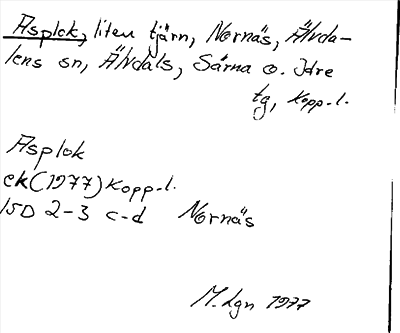 Asplok, liten tjärn, Nornäs, Älvda-
lens sn, Älvdals, Särna o. Idre
tg, Kopp.l.
Asplok
ek(1977) Kopp.l.
15D 2-3 c-d Nornäs
M. Lgn 1977